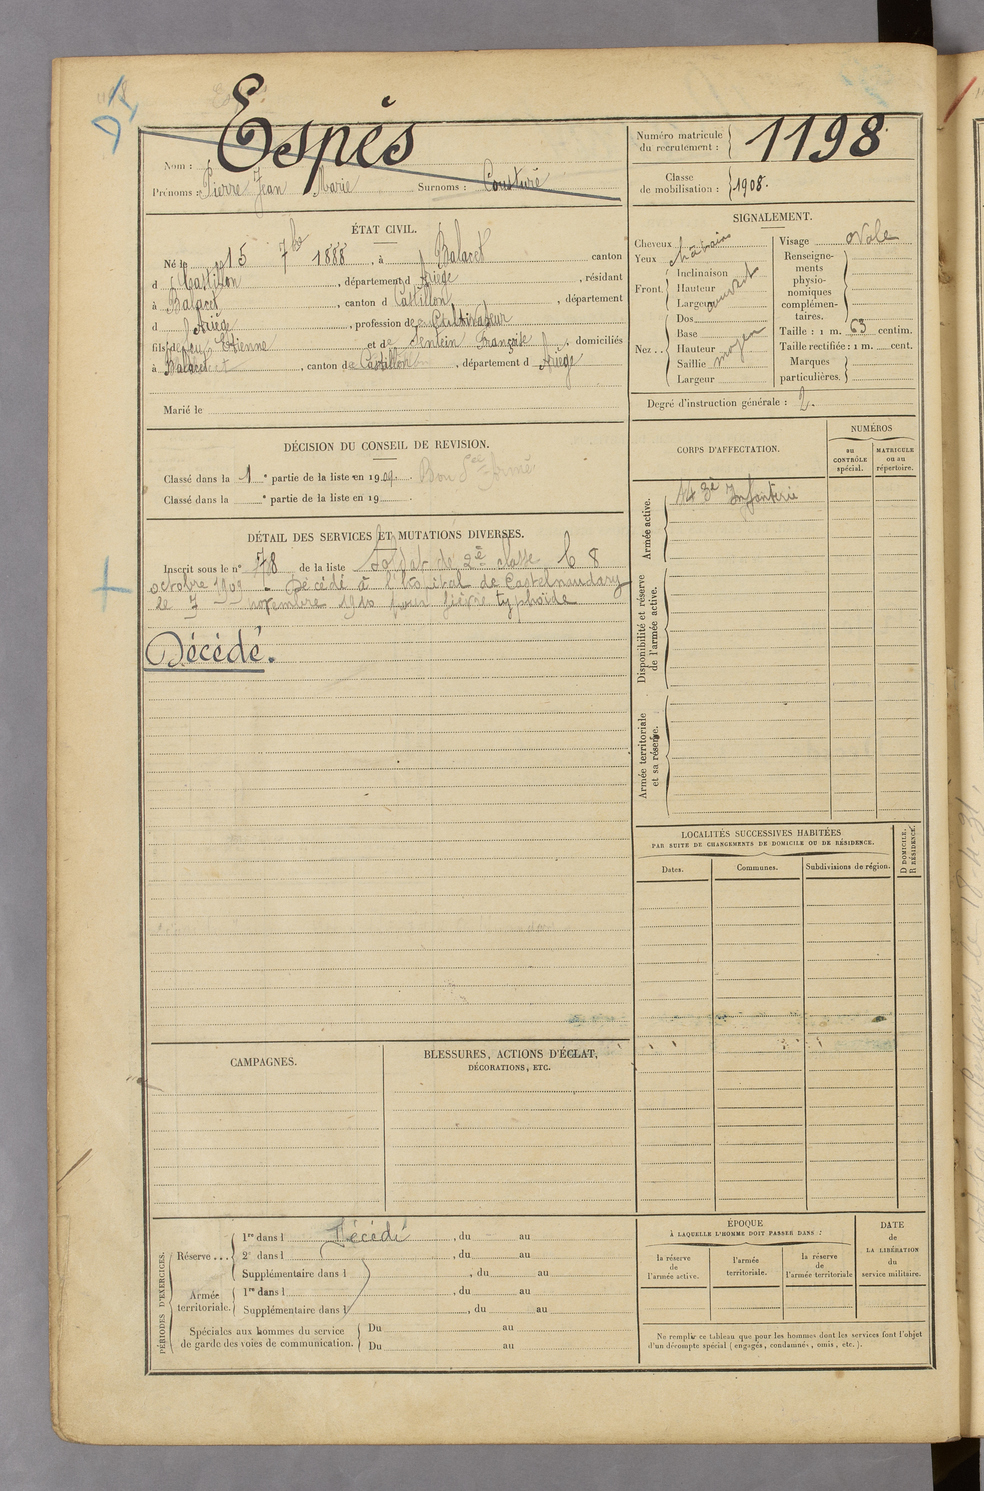 Espès
Nom :
Prénoms : Pierre Jean Marie Surnoms : Cousturé
Numéro matricule du recrutement : 1198
Classe de mobilisation : 1908.
ÉTAT CIVIL.
Né le 15 7bre 1888, à Balacet canton
d Castillon, département d Ariège, résidant
à Balacet, canton d Castillon, département
d Ariège, profession de Cultivateur
fils de feu Etienne et de Sentein Françoise, domiciliés
à Balacet, canton de Castillon, département d Ariège
Marié le
SIGNALEMENT.
Cheveux châtains
Yeux
Front. Inclinaison
Hauteur
Largeur
Nez.. Dos
Base
Hauteur moyen
Saillie
Largeur
Visage ovale
Renseignements physionomiques complémentaires.
Taille : 1 m. 63 centim.
Taille rectifiée : 1 m. cent.
Marques particulières.
Degré d'instruction générale : 2.
DÉCISION DU CONSEIL DE REVISION.
Classé dans la 1e partie de la liste en 1909. Bon Sce Armé
Classé dans la e partie de la liste en 19
DÉTAIL DES SERVICES ET MUTATIONS DIVERSES.
Inscrit sous le n° 78 de la liste Soldat de 2e classe 8
octobre 1909. Décédé à l'hôpital de Castelnaudary
le 7 novembre 1910 pour fièvre typhoïde
Décédé.
CORPS D'AFFECTATION.
NUMÉROS
au CONTRÔLE spécial.
MATRICULE ou au répertoire.
Armée active.
143e Infanterie
Disponibilité et réserve de l'armée active.
Armée territoriale et sa réserve.
LOCALITÉS SUCCESSIVES HABITÉES
PAR SUITE DE CHANGEMENTS DE DOMICILE OU DE RÉSIDENCE.
Dates. Communes. Subdivisions de région.
D DOMICILE. R RÉSIDENCE.
CAMPAGNES.
BLESSURES, ACTIONS D'ÉCLAT,
DÉCORATIONS, ETC.
PÉRIODES D'EXERCICES.
Réserve... 1re dans l Décédé, du au
2e dans l, du au
Supplémentaire dans l, du au
Armée territoriale. 1re dans l, du au
Supplémentaire dans l, du au
Spéciales aux hommes du service
de garde des voies de communication.
Du au
Du au
ÉPOQUE
À LAQUELLE L'HOMME DOIT PASSER DANS :
la réserve de l'armée active.
l'armée territoriale.
la réserve de l'armée territoriale
DATE de LA LIBÉRATION du service militaire.
Ne remplir ce tableau que pour les hommes dont les services font l'objet
d'un décompte spécial (engagés, condamnés, omis, etc.).